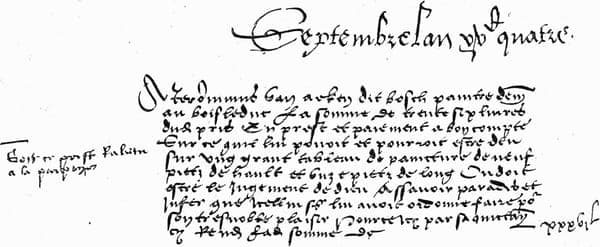 Septembre lan xvc quatre.
A Jeronimus van aeken dit bosch paintre dem
au bois le duc la somme de trente six livres
dud pris En prest et paiement a bon compte
Sur ce quil luy povoit et pourroit estre deu
sur ung grant tableau de paincture de neuf
pietz de hault et unze pietz de long Ou doit
estre le Jugement de dieu Assavoir paradis et
Infer que icelluy ss luy avoit ordonne faire por
son tresnoble plaisir pour ce icy par sa quictan
cy Rend lad somme de xxxvi L
Soit ce prest Rabatu
a la